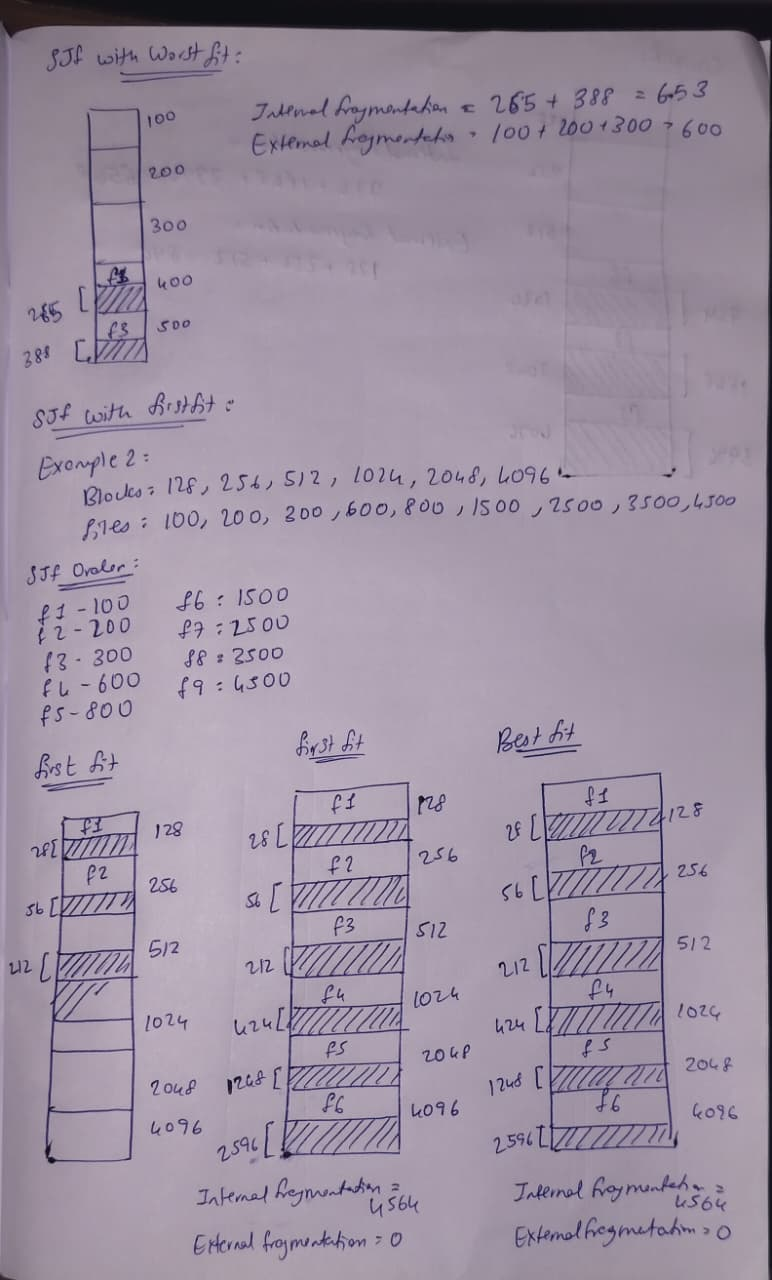 SJf with Worst fit:
Internal fragmentation = 265 + 388 = 653
External fragmentation = 100 + 200 + 300 = 600
100
200
300
400
265
f3
500
388
SJf with firstfit:
Example 2:
Blocks: 128, 256, 512, 1024, 2048, 4096
files: 100, 200, 300, 600, 800, 1500, 2500, 3500, 4500
SJf Order:
f1 - 100 f6 : 1500
f2 - 200 f7 : 2500
f3 - 300 f8 : 3500
f4 - 600 f9 : 4500
f5 - 800
first fit
f1
128
28
f2
256
56
512
212
1024
2048
4096
first fit
f1
128
28
f2
256
56
f3
512
212
f4
1024
424
f5
2048
1248
f6
4096
2596
Internal fragmentation =
4564
External fragmentation = 0
Best fit
f1
128
28
f2
256
56
f3
512
212
f4
1024
424
f5
2048
1248
f6
4096
2596
Internal fragmentation =
4564
External fragmentation = 0